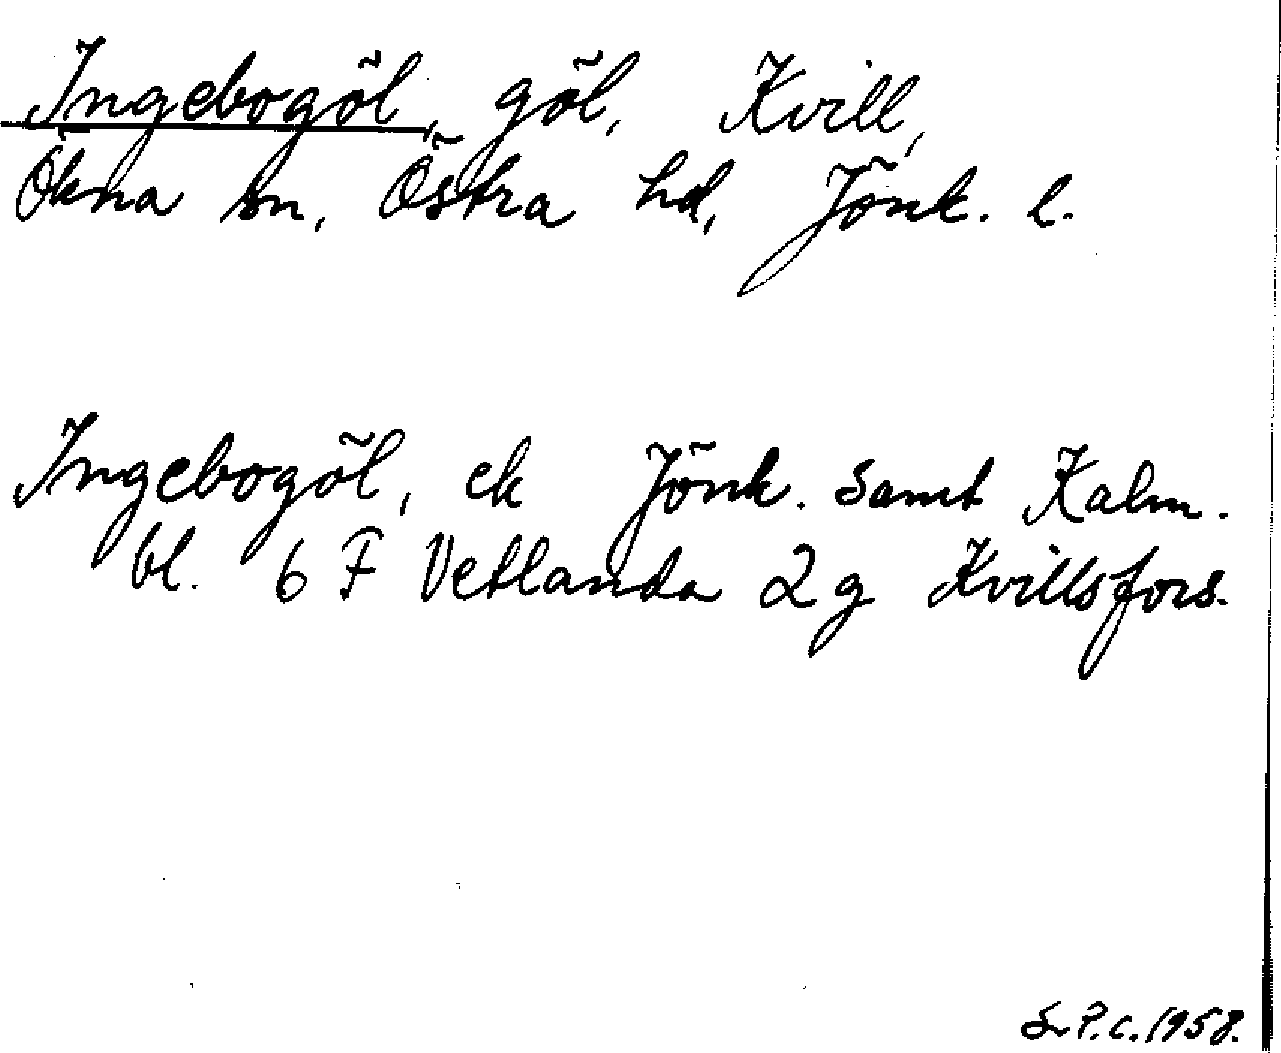 Ingebogöl, göl, Kvill,
Ökna sn, Östra hd, Jönk. l.
Ingebogöl, ek Jönk. samt Kalm.
bl. 6 F Vetlanda 2 g Kvillsfors.
P.C. 1958.